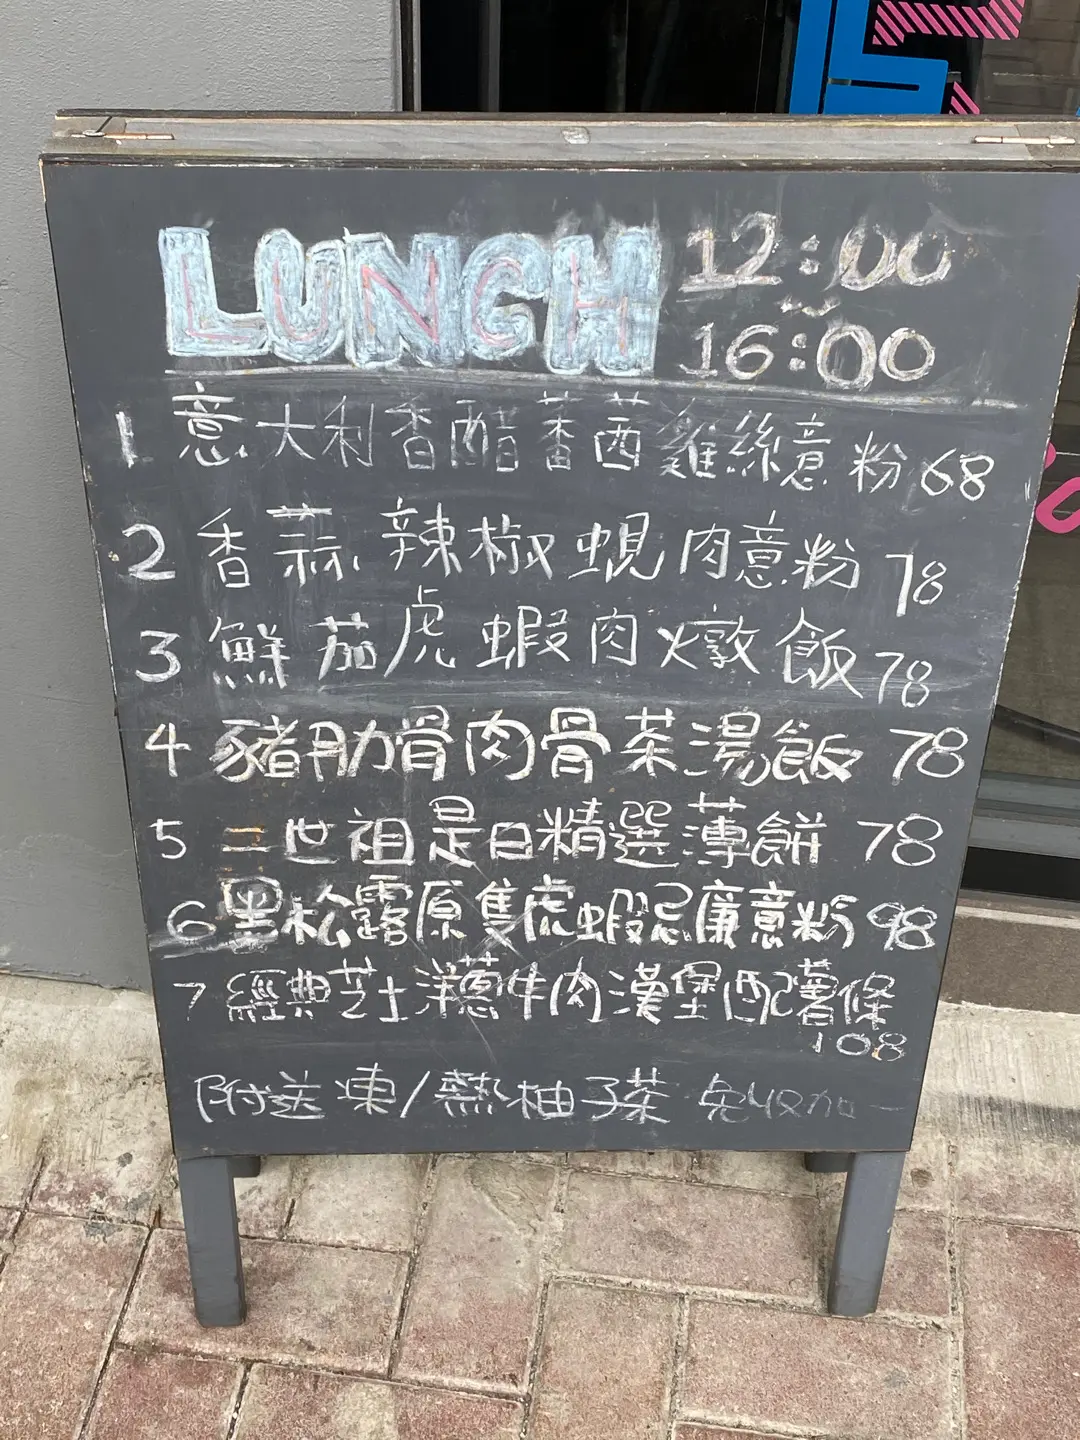 LUNCH 12:00
~
16:00
1 意大利香醋蕃茜雞絲意粉 68
2 香蒜辣椒蜆肉意粉 78
3 鮮茄虎蝦肉燉飯 78
4 豬肋骨肉骨茶湯飯 78
5 二世祖是日精選薄餅 78
6 黑松露原隻虎蝦忌廉意粉 98
7 經典芝士洋蔥牛肉漢堡配薯條
108
附送凍/熱柚子茶 免收加一